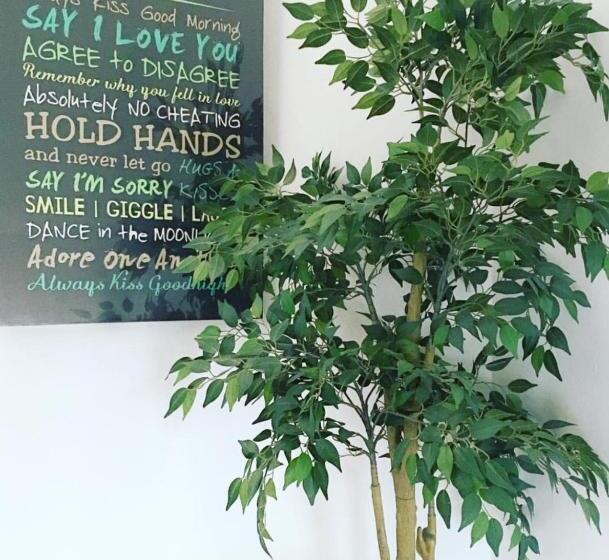 Kiss Good Morning
SAY I LOVE YOU
AGREE to DISAGREE
Remember why you fell in love
Absolutely NO CHEATING
HOLD HANDS
and never let go HUGS &
SAY I'M SORRY KISSES
SMILE | GIGGLE |
DANCE in the
Adore One
Always Kiss Goodnight